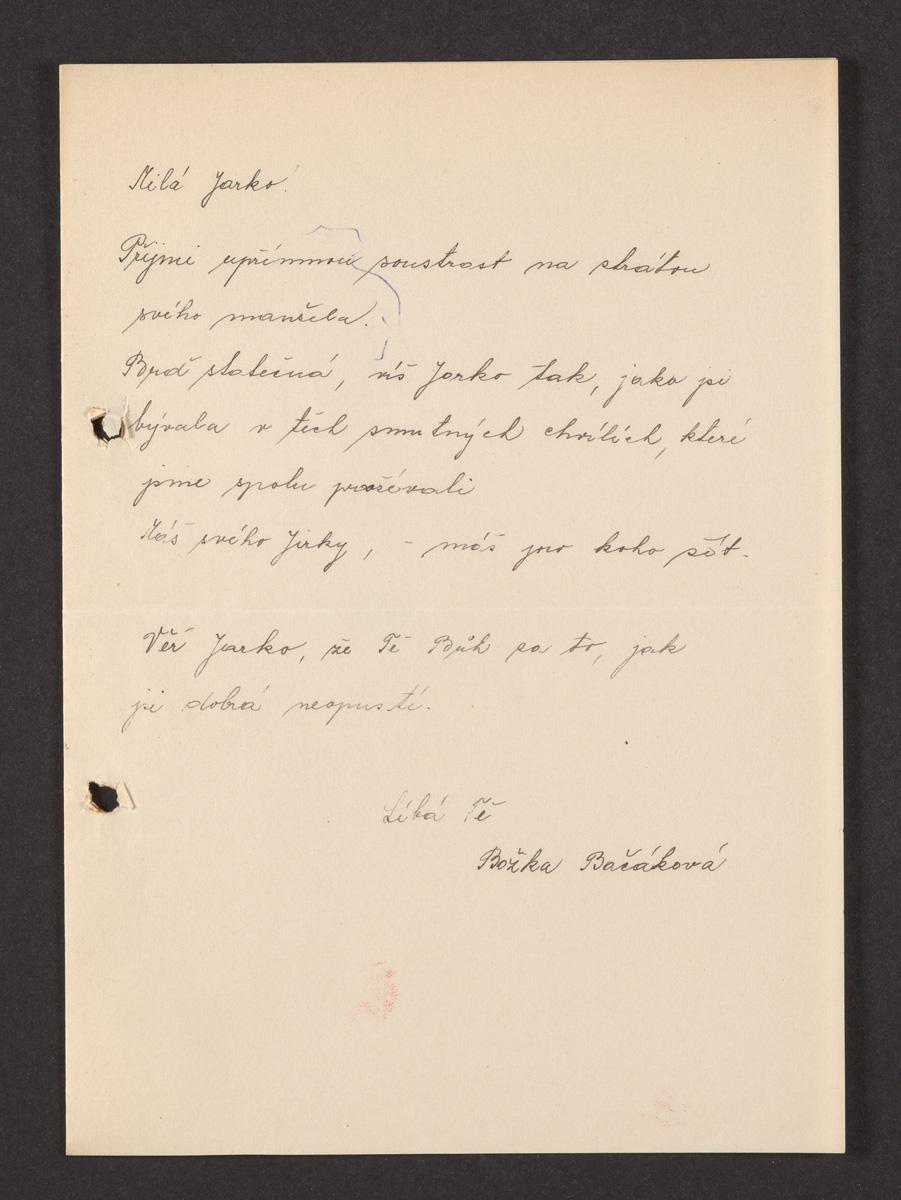 Milá Jarko!
Přijmi upřímnou soustrast na strátou
svého manžela.
Buď statečná, víš Jarko tak, jako jsi
bývala v těch smutných chvílích, které
jsme spolu prožívali
Máš svého Jirky, - máš pro koho žít.
Věř Jarko, že Tě Bůh za to, jak
jsi dobrá neopustí.
Líbá Tě
Božka Bačáková